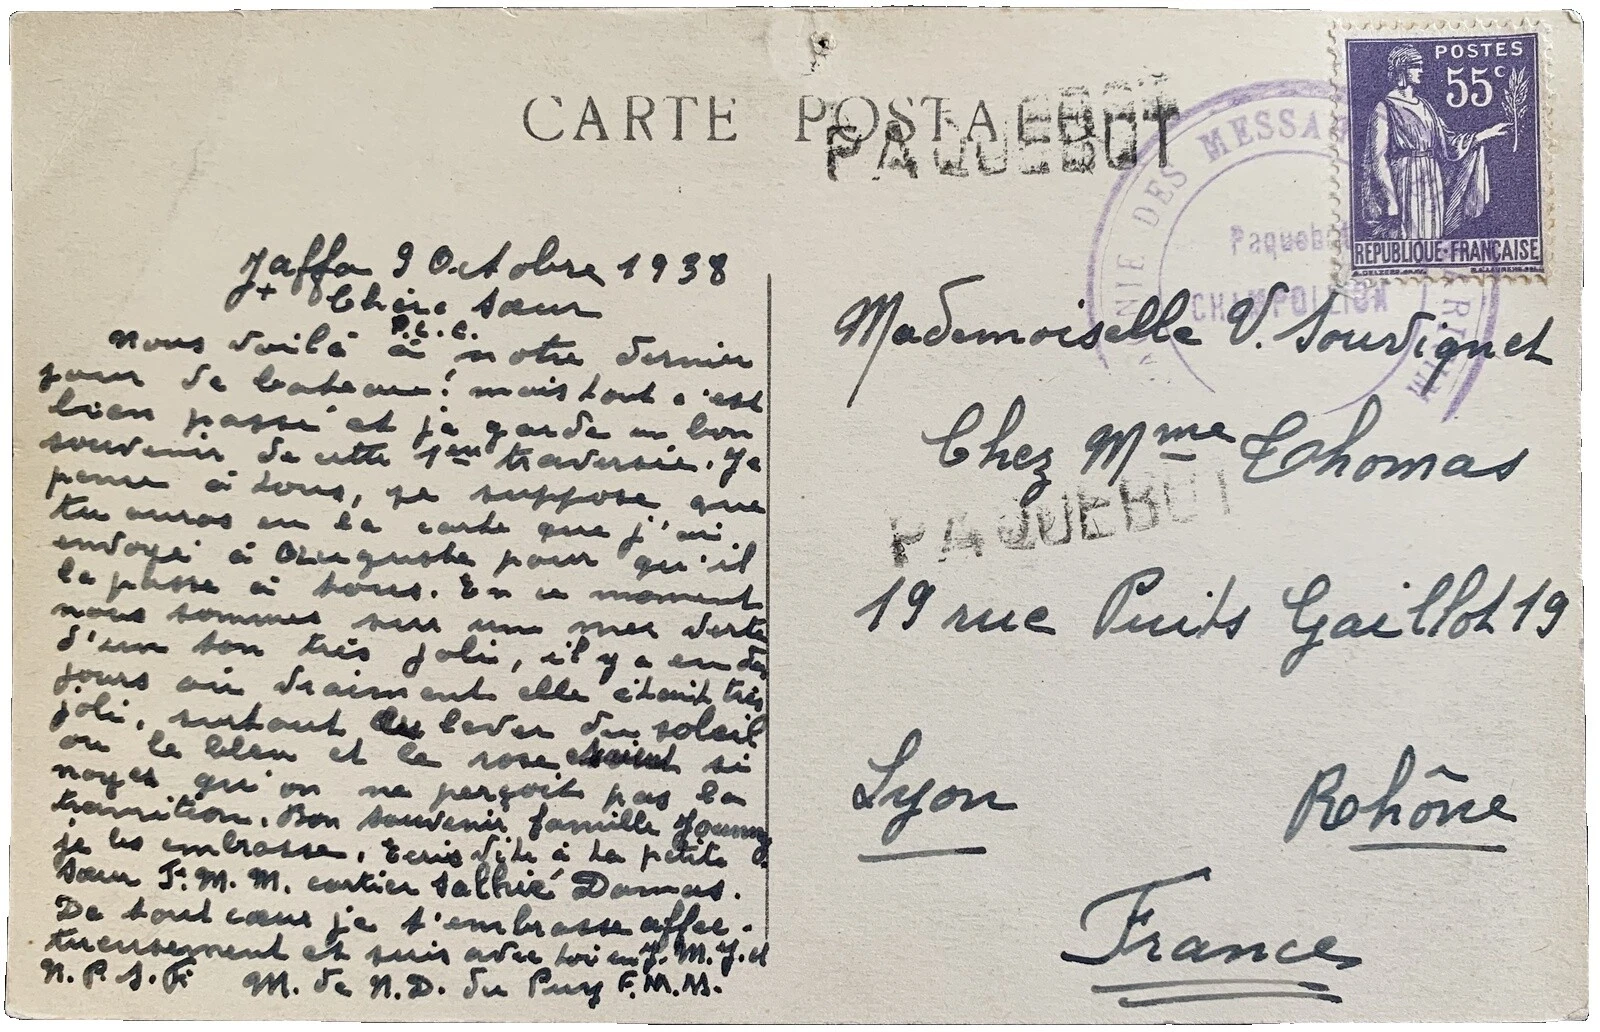 CARTE POSTALE
PAQUEBOT
PAQUEBOT
POSTES
55c
REPUBLIQUE·FRANÇAISE
NIE DES MESSA
Paquebot
CHAMPOLLION
Jaffa 9 Octobre 1938
+ Chère Sœur
P.L.C.
Nous voilà à notre dernier
jour de bateau! mais tout c'est
bien passé et je garde un bon
souvenir de cette 1ère traversée. Je
pense à tous, je suppose que
tu auras eu la carte que j'ai
envoyé à Auguste pour qu'il
la passe à tous. En ce moment
nous sommes sur une mer verte
d'un ton très joli, il y a eu des
jours où vraiment elle était très
joli, surtout au lever du soleil
ou le bleu et le rose étaient si
noyés qu'on ne perçoit pas la
transition. Bon souvenir famille
je les embrasse, Ecris vite à ta petite
sœur F.M.M. cartier Salhié Damas.
De tout cœur je t'embrasse affec-
tueusement et suis avec toi en J.M.J. et
N.P.S.F. M. de N.D. du Puy F.M.M.
Mademoiselle V. Souvignet
Chez Mme Thomas
PAQUEBOT
19 rue Puits Gaillot 19
Lyon Rhône
France